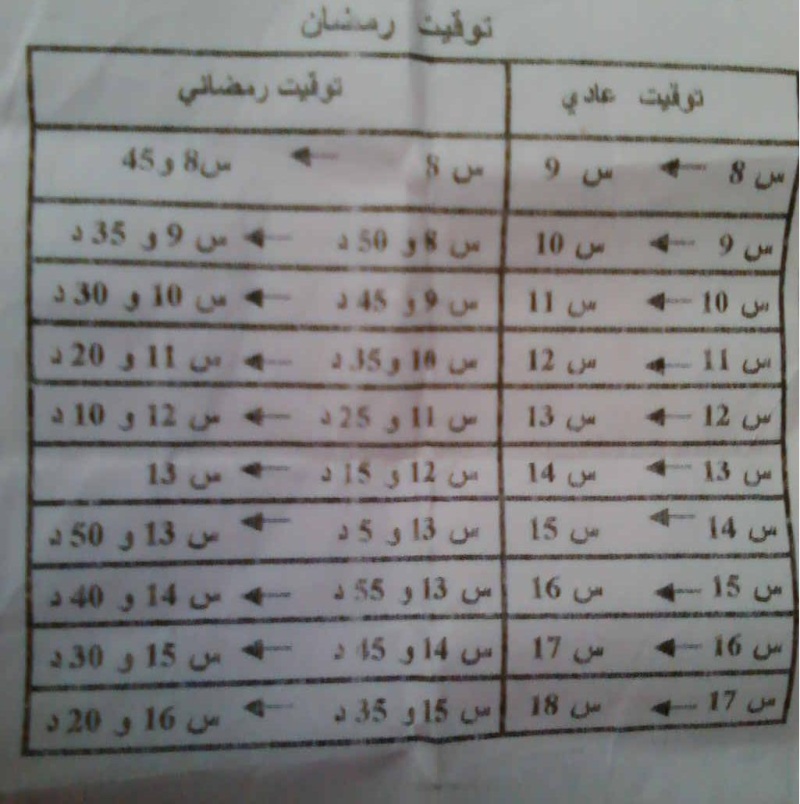 توقيت رمضان
توقيت عادي توقيت رمضاني
س 8 ← س 9 س 8 ← س8 و45
س 9 ← س 10 س 8 و 50 د ← س 9 و 35 د
س 10 ← س 11 س 9 و 45 د ← س 10 و 30 د
س 11 ← س 12 س 10 و35 د ← س 11 و 20 د
س 12 ← س 13 س 11 و 25 د ← س 12 و 10 د
س 13 ← س 14 س 12 و 15 د ← س 13
س 14 ← س 15 س 13 و 5 د ← س 13 و 50 د
س 15 ← س 16 س 13 و 55 د ← س 14 و 40 د
س 16 ← س 17 س 14 و 45 د ← س 15 و 30 د
س 17 ← س 18 س 15 و 35 د ← س 16 و 20 د